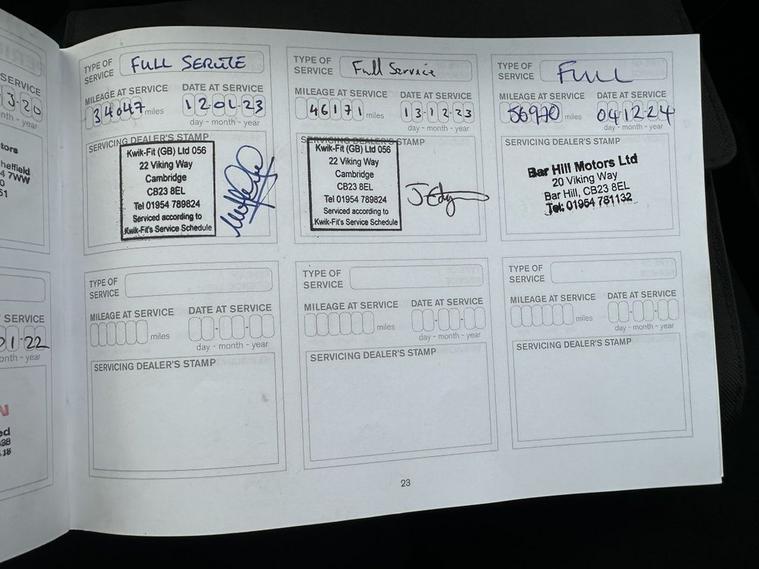 SERVICE
3-20
month - year
tors
heffield
4 7WW
0
51
SERVICE
01-22
month - year
N
ed
TYPE OF SERVICE FULL SERVICE
MILEAGE AT SERVICE DATE AT SERVICE
34047 miles 12-01-23
day - month - year
SERVICING DEALER'S STAMP
Kwik-Fit (GB) Ltd 056
22 Viking Way
Cambridge
CB23 8EL
Tel 01954 789824
Serviced according to
Kwik-Fit's Service Schedule
TYPE OF SERVICE Full Service
MILEAGE AT SERVICE DATE AT SERVICE
46171 miles 13-12-23
day - month - year
SERVICING DEALER'S STAMP
Kwik-Fit (GB) Ltd 056
22 Viking Way
Cambridge
CB23 8EL
Tel 01954 789824
Serviced according to
Kwik-Fit's Service Schedule
TYPE OF SERVICE FULL
MILEAGE AT SERVICE DATE AT SERVICE
56970 miles 04-12-24
day - month - year
SERVICING DEALER'S STAMP
Bar Hill Motors Ltd
20 Viking Way
Bar Hill, CB23 8EL
Tel: 01954 781132
TYPE OF SERVICE
MILEAGE AT SERVICE DATE AT SERVICE
miles
day - month - year
SERVICING DEALER'S STAMP
TYPE OF SERVICE
MILEAGE AT SERVICE DATE AT SERVICE
miles
day - month - year
SERVICING DEALER'S STAMP
TYPE OF SERVICE
MILEAGE AT SERVICE DATE AT SERVICE
miles
day - month - year
SERVICING DEALER'S STAMP
23